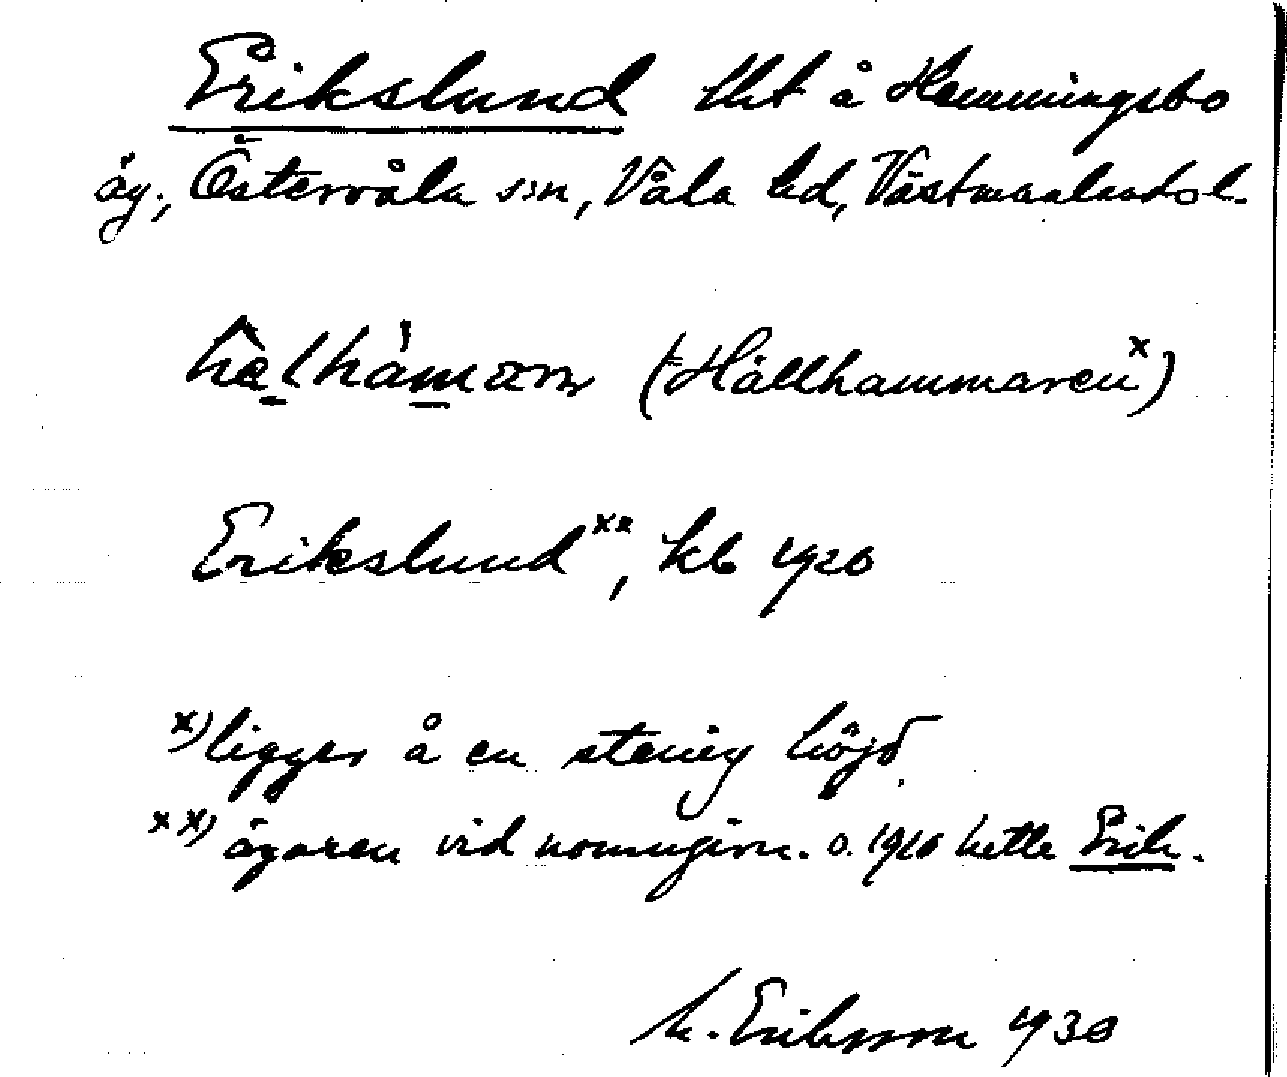 Erikslund lht å Hemmingsbo
äg., Östervåla sn, Våla hd, Västmanlands l.
(Hällhammaren x)
Erikslund xx, kb 1920
x) ligger å en stenig höjd
xx) ägaren vid namngivn. o. 1910 hette Erik.
M. Eriksson 1930